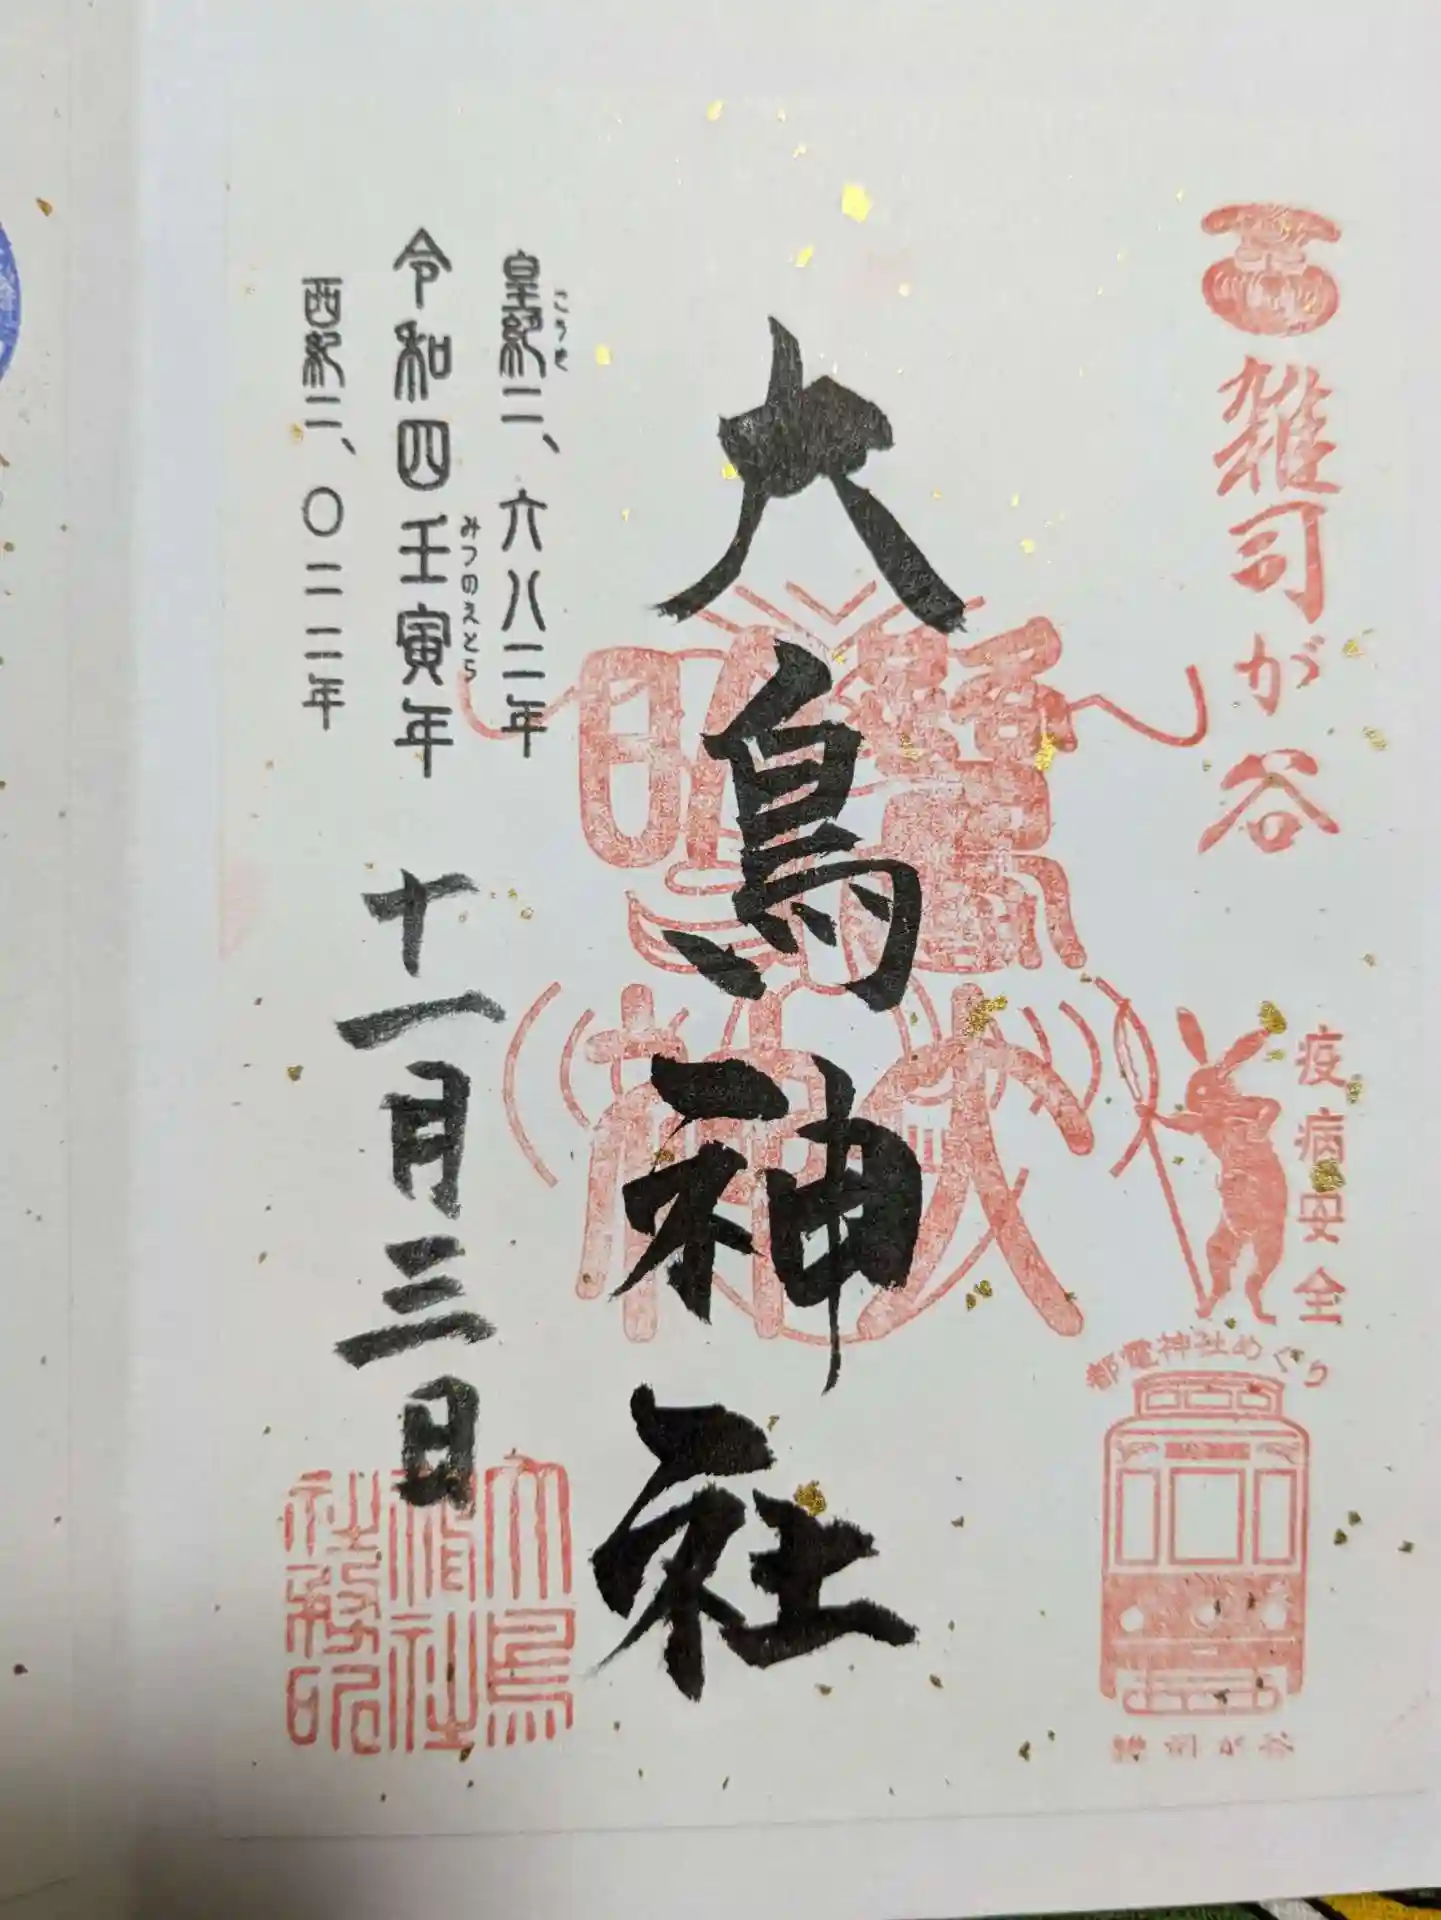 雑司が谷
疫病安全
都電神社めぐり
大鳥神社
皇紀二、六八二年
こうき
令和四壬寅年
みつのえとら
十一月三日
西紀二、〇二二年
大鳥
神社
社務所